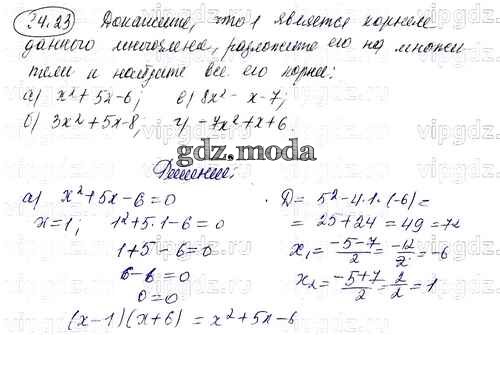 34.23 Докажите, что 1 является корнем
данного многочлена, разложите его на множи
тели и найдите все его корни:
а) x² + 5x - 6; в) 8x² - x - 7;
б) 3x² + 5x - 8; г) -7x² + x + 6.
gdz.moda
Решение:
а) x² + 5x - 6 = 0
x = 1; 1² + 5·1 - 6 = 0
1 + 5 - 6 = 0
6 - 6 = 0
0 = 0
(x - 1)(x + 6) = x² + 5x - 6
D = 5² - 4·1·(-6) =
= 25 + 24 = 49 = 7²
x₁ = (-5-7)/2 = -12/2 = -6
x₂ = (-5+7)/2 = 2/2 = 1